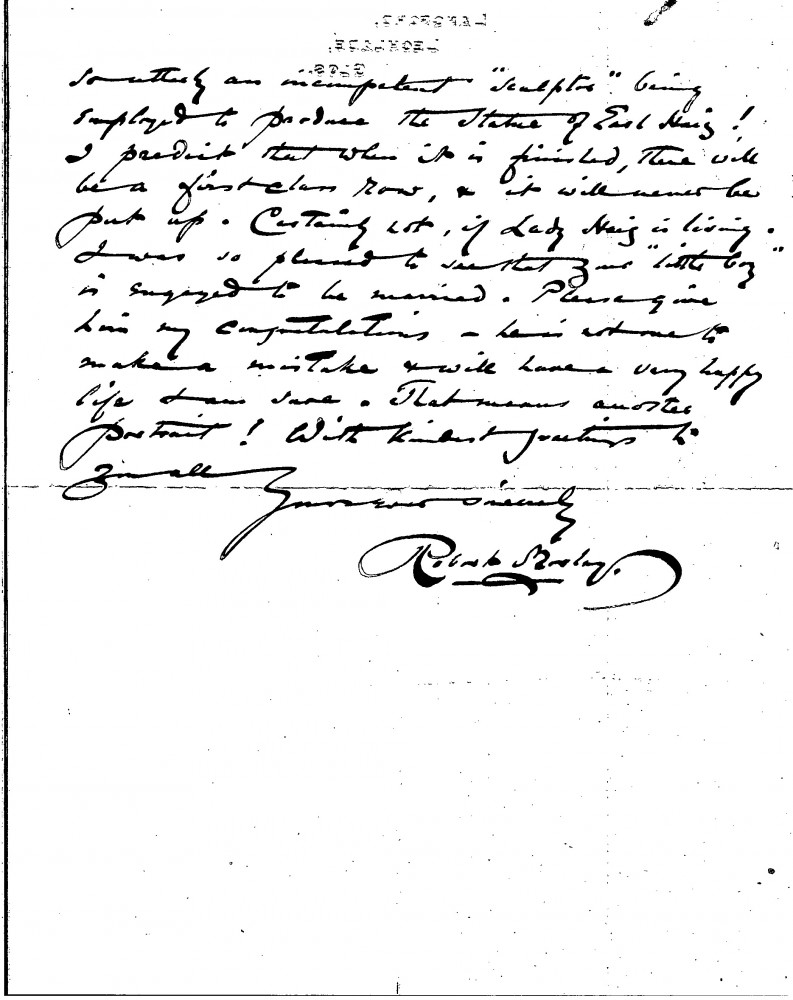 LANGFORD,
LECHLADE,
GLOS.
so utterly an incompetent "sculptor" being
employed to produce the Statue of Earl Haig!
I predict that when it is finished, there will
be a first class row, & it will never be
put up. Certainly not, if Lady Haig is living.
I was so pleased to see that your "little boy"
is engaged to be married. Please give
him my congratulations - he is not one to
make a mistake & will have a very happy
life I am sure. That means another
portrait! With kindest greetings to
you all
Yours ever sincerely
Robert Morley.